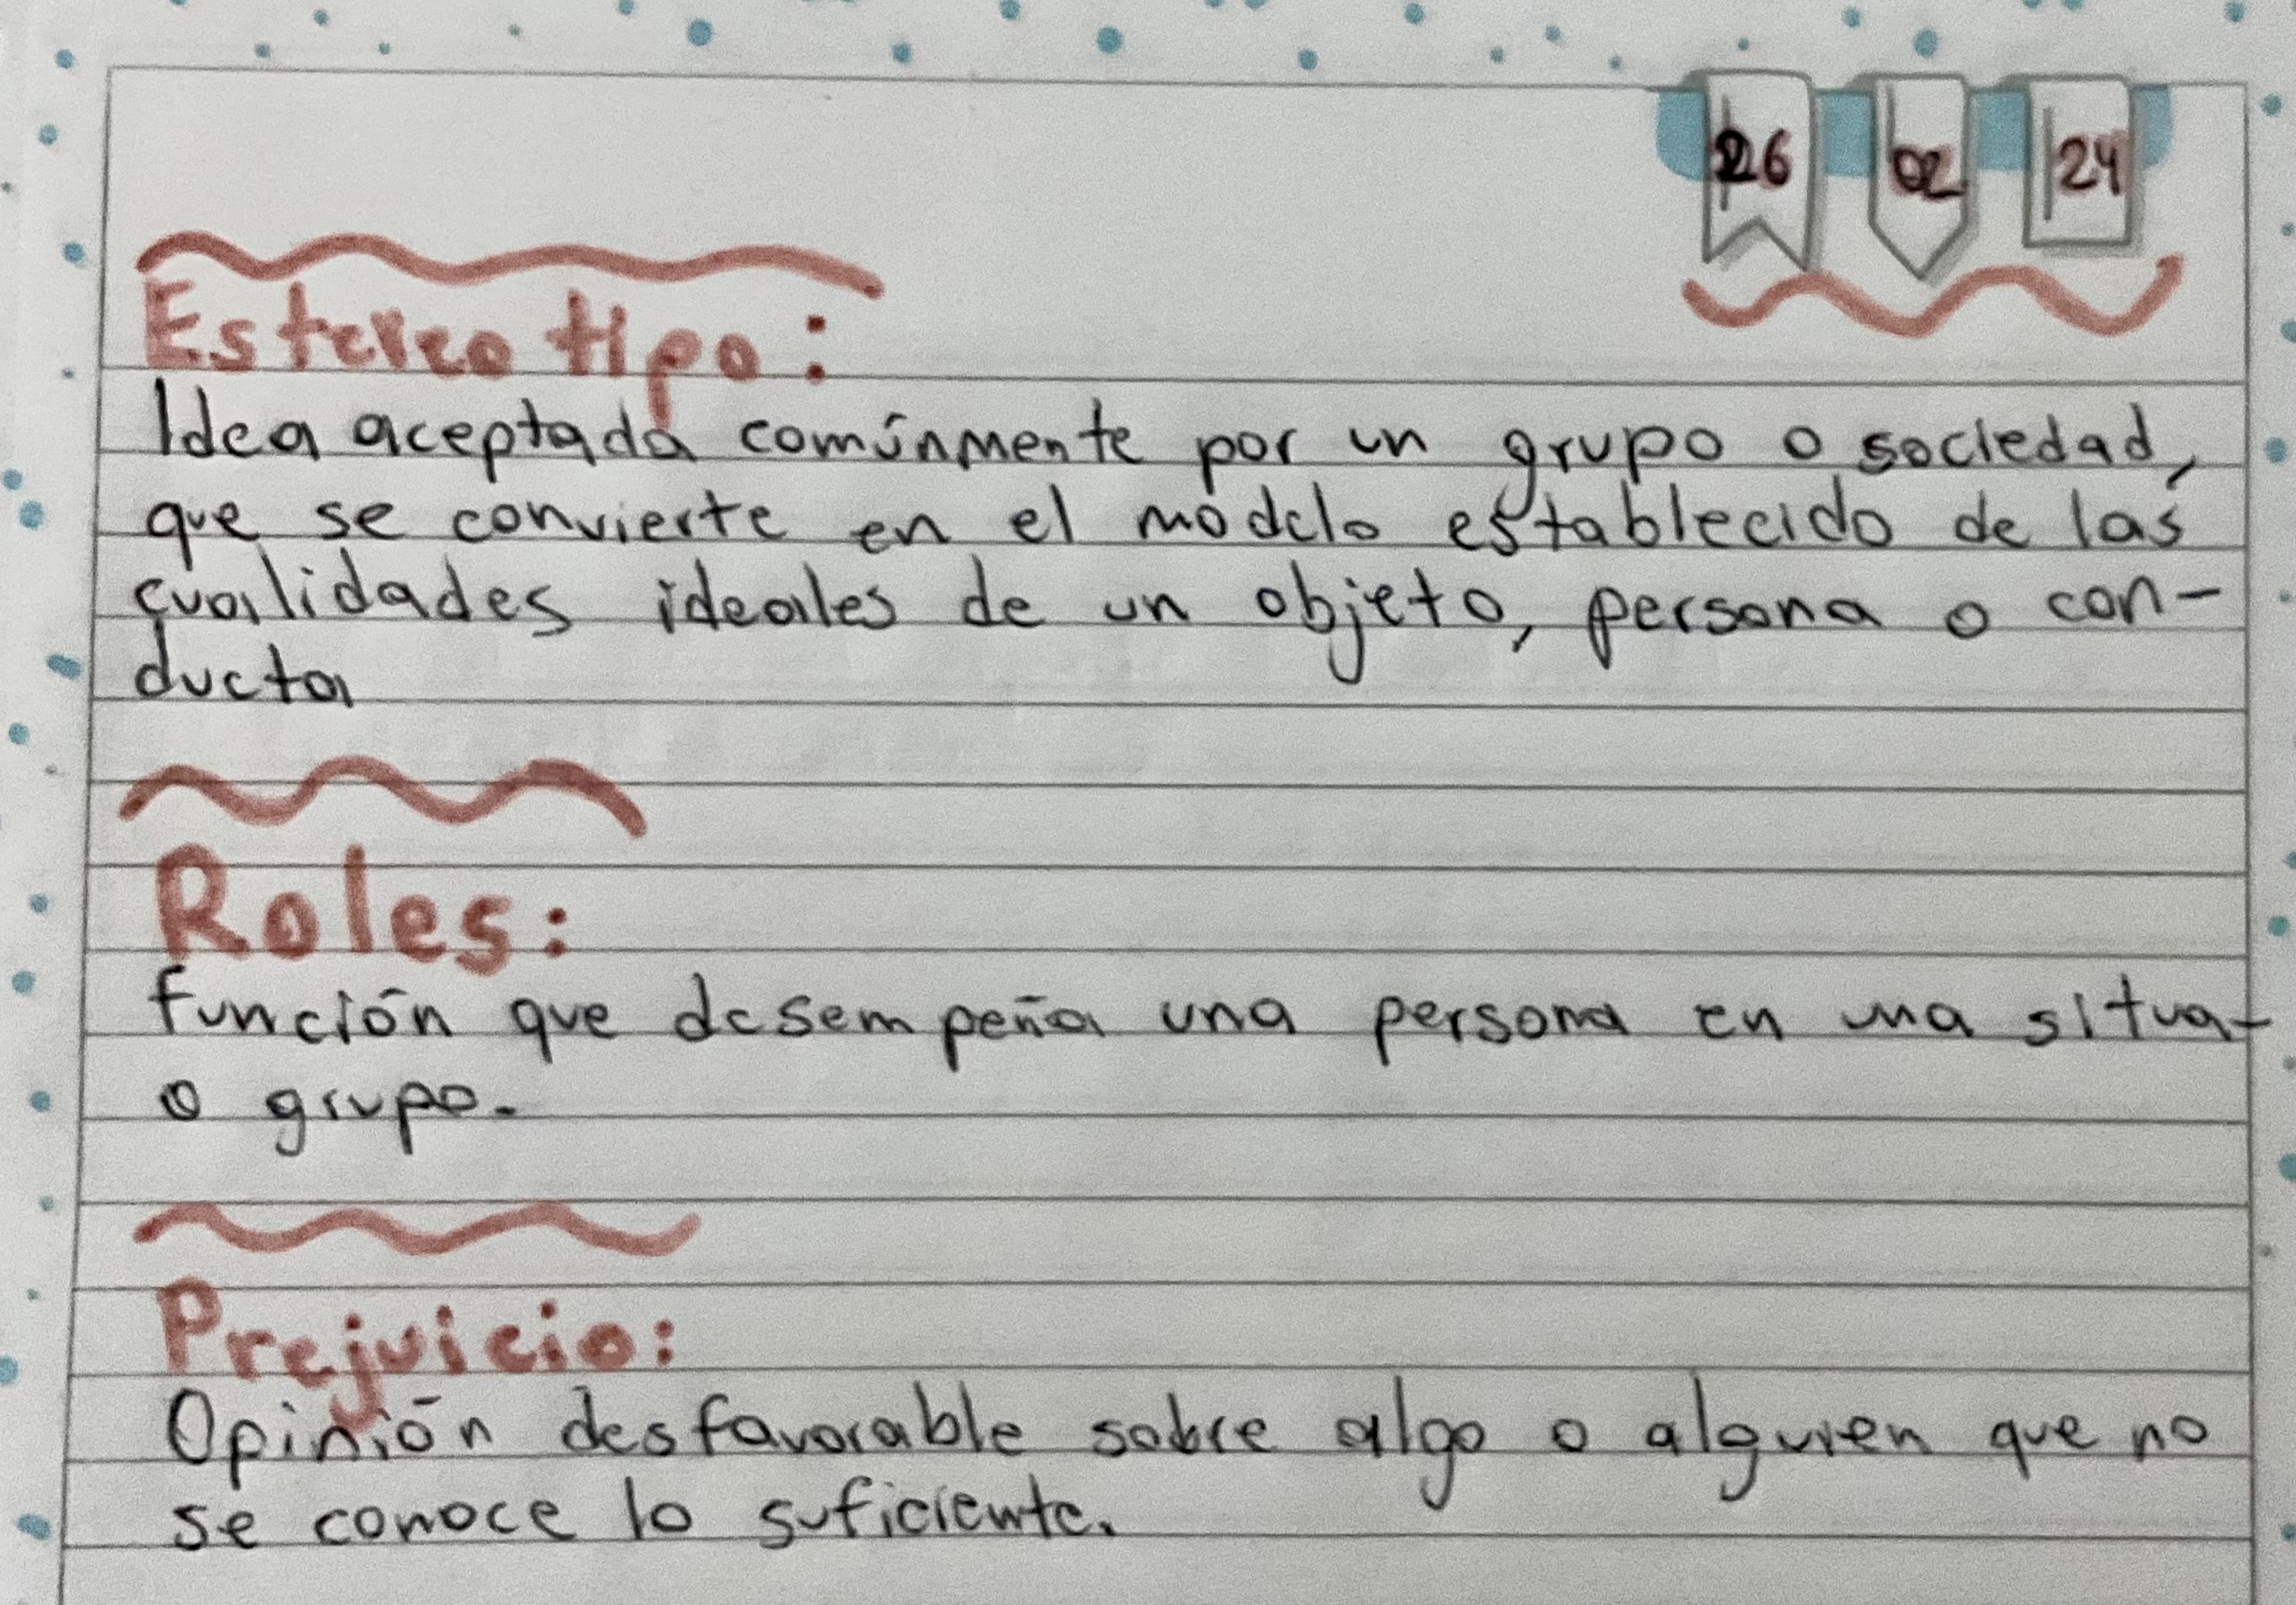 26 02 24
Estereotipo:
Idea aceptada comúnmente por un grupo o sociedad,
que se convierte en el modelo establecido de las
cualidades ideales de un objeto, persona o con-
ducta
Roles:
función que desempeña una persona en una situa-
o grupo.
Prejuicio:
Opinión desfavorable sobre algo o alguien que no
se conoce lo suficiente.